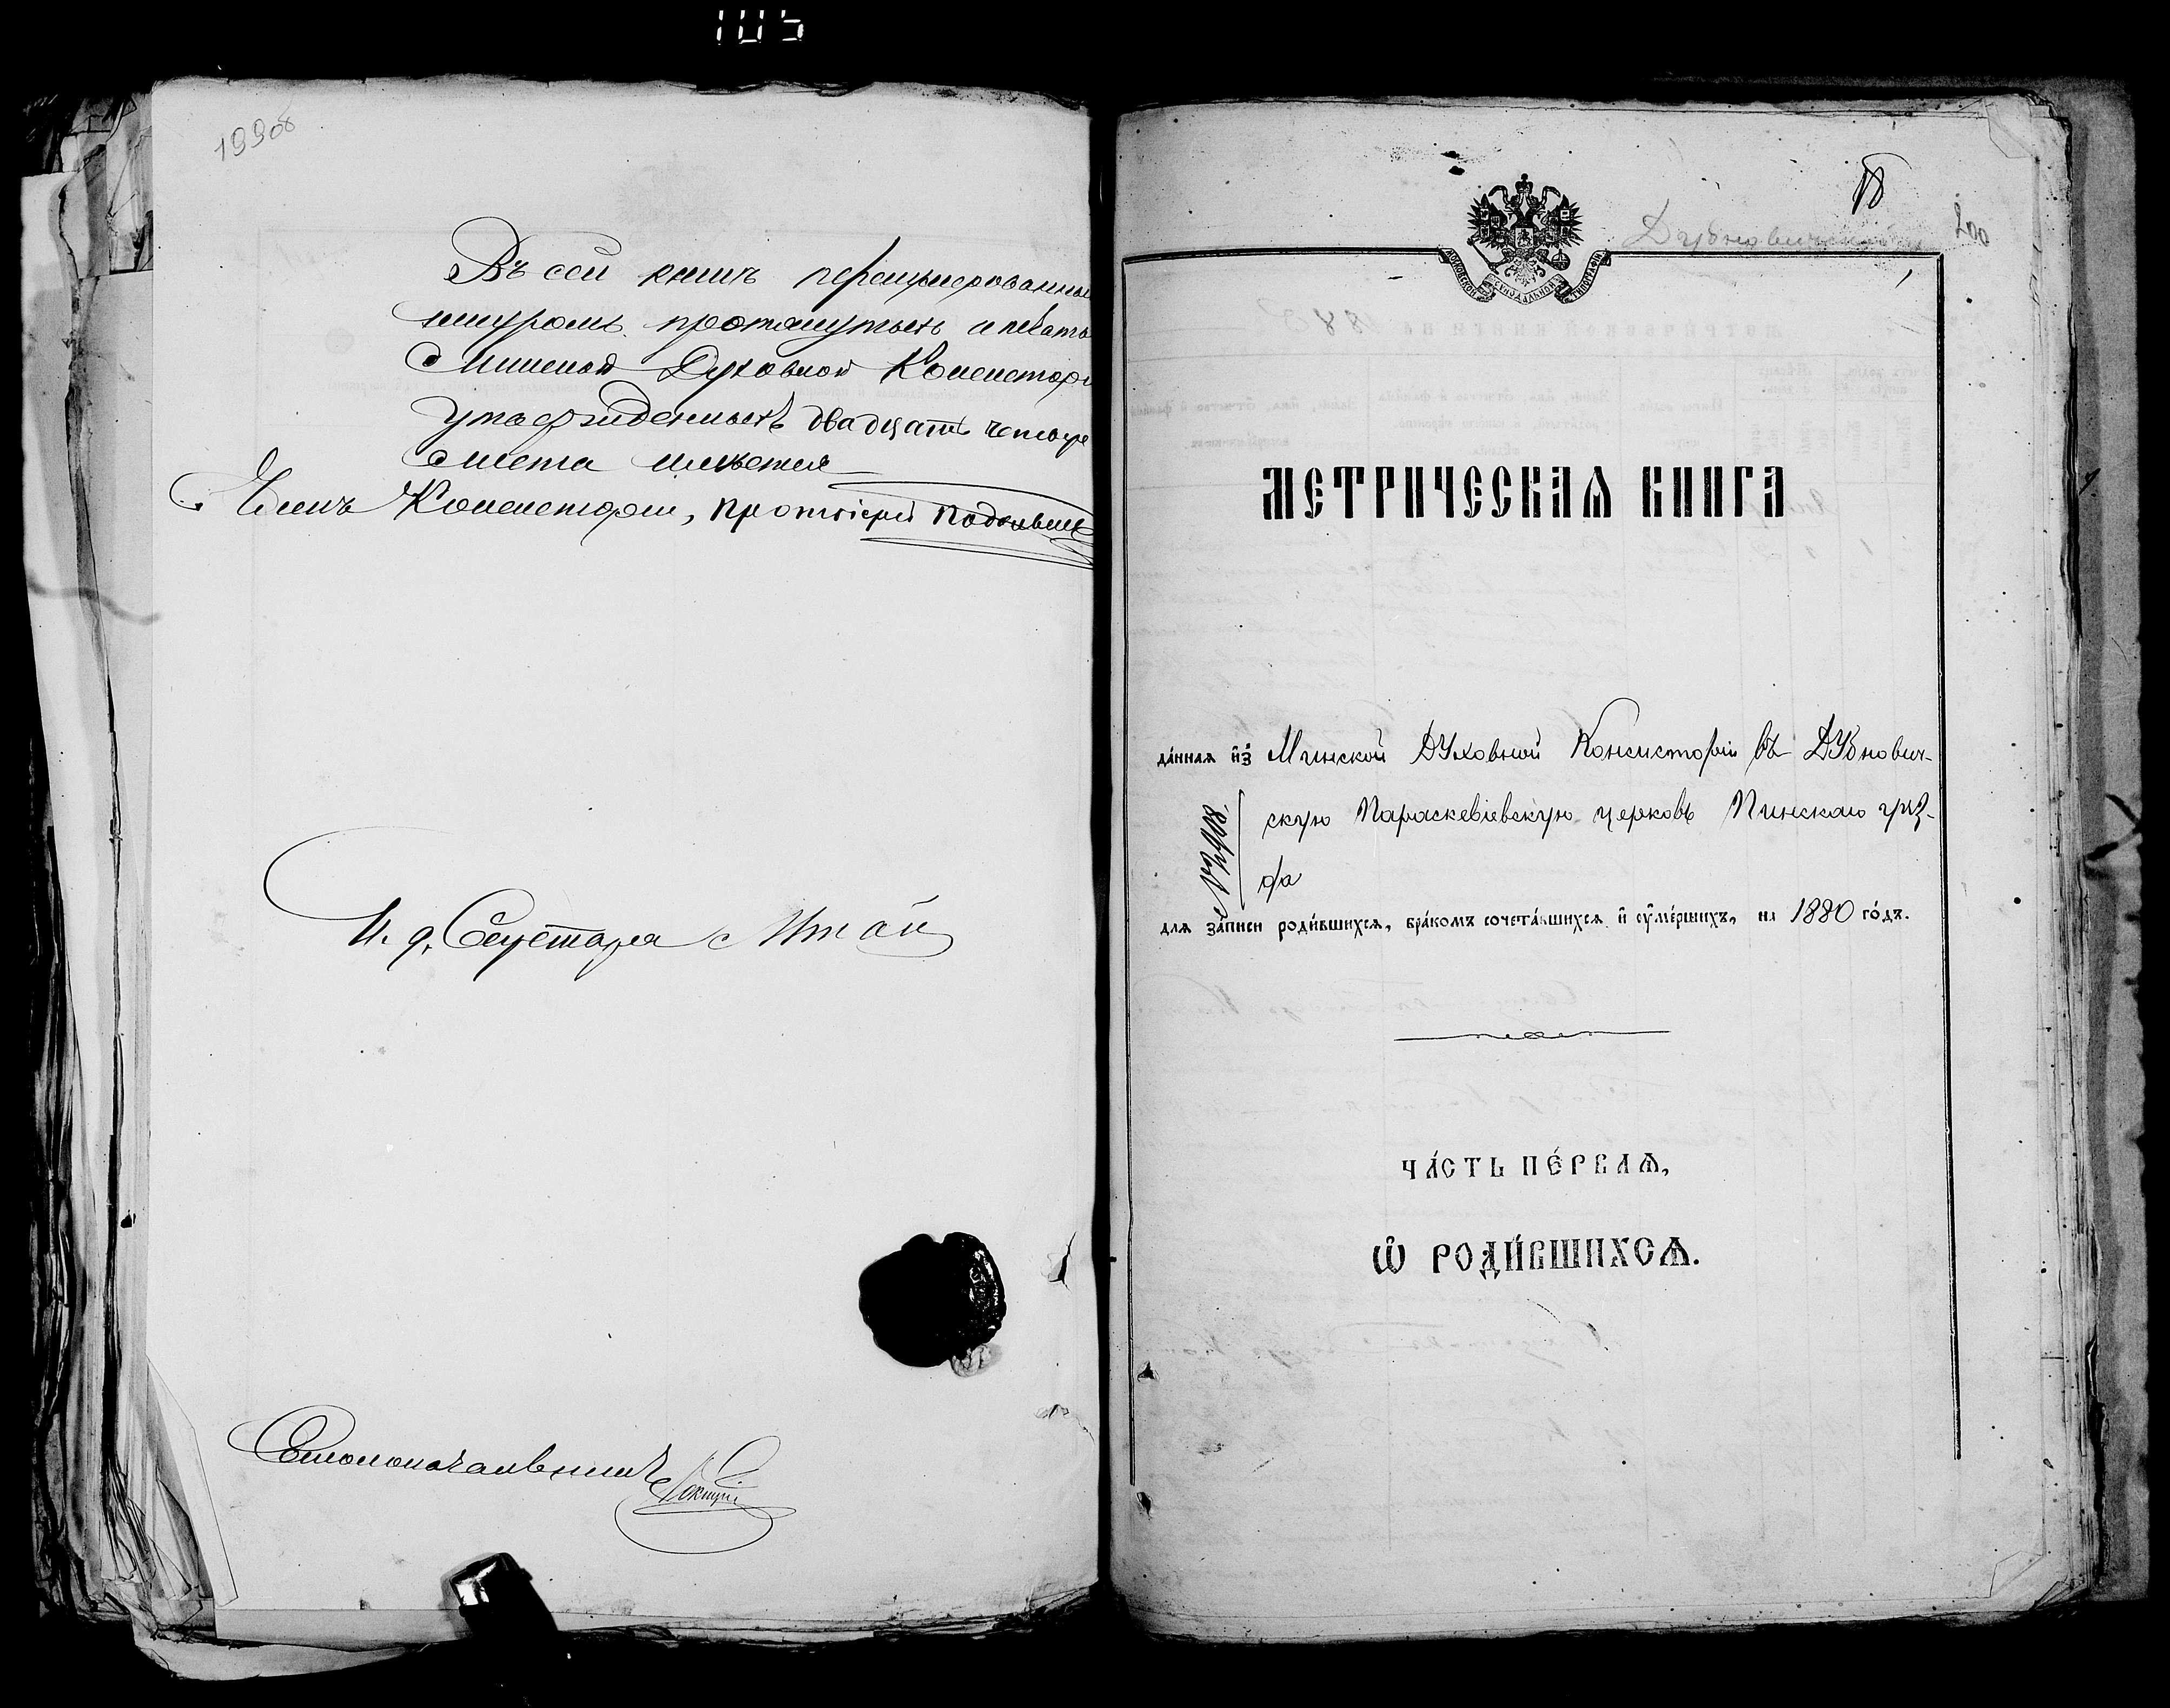 105
199об
Въ сей книгѣ перенумерованныхъ
шнуромъ протянутыхъ и печатью
Минской Духовной Консисторіи
утвержденныхъ двадцать четыре
листа имѣется
Членъ Консисторіи, протоіерей
И. д. Секретаря
Столоначальникъ
200
Дубновичской
МЕТРИЧЕСКАѦ КНИГА
да́ннаѧ и҆з̾ Минской Духовной Консисторіи въ Дубнович-
скую Параскевіевскую церковь Пинскаго уѣз-
да
для за́писи роди́вшихсѧ, бра́комъ сочета́вшихсѧ и҆ ᲂу҆ме́ршихъ, на 1880 го́дъ.
ЧА́СТЬ ПЕ́РВАѦ,
Ѡ҆ РОДИ́ВШИХСѦ.